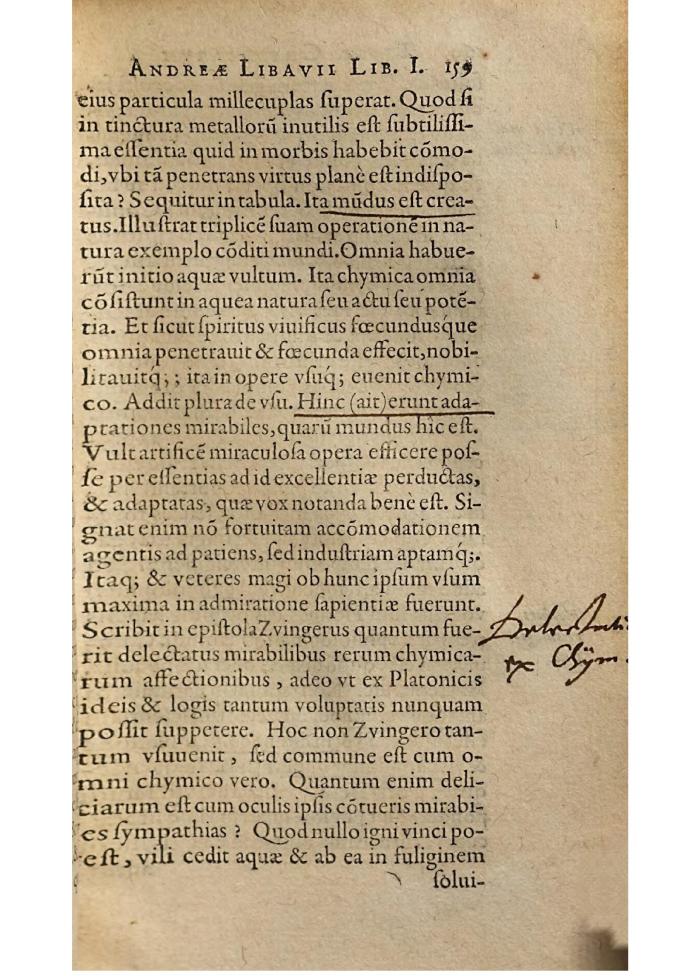 ANDREÆ LIBAVII LIB. I. 159
eius particula millecuplas ſuperat. Quod ſi
in tinctura metallorũ inutilis eſt ſubtiliſſi-
ma eſſentia quid in morbis habebit cõmo-
di, vbi tã penetrans virtus planè eſt indiſpo-
ſita? Sequitur in tabula. Ita mũdus eſt crea-
tus. Illuſtrat triplicẽ ſuam operationẽ in na-
tura exemplo cõditi mundi. Omnia habue-
rũt initio aquæ vultum. Ita chymica omnia
cõſiſtunt in aquea natura ſeu actu ſeu potẽ-
tia. Et ſicut ſpiritus viuificus fœcundusq́ue
omnia penetrauit & fœcunda effecit, nobi-
litauitq́;; ita in opere vſuq́; euenit chymi-
co. Addit plura de vſu. Hinc (ait) erunt ada-
ptationes mirabiles, quarũ mundus hîc eſt.
Vult artificẽ miraculoſa opera efficere poſ-
ſe per eſſentias ad id excellentiæ perductas,
& adaptatas, quæ vox notanda benè eſt. Si-
gnat enim nõ fortuitam accõmodationem
agentis ad patiens, ſed induſtriam aptamq́;.
Itaq; & veteres magi ob hunc ipſum vſum
maxima in admiratione ſapientiæ fuerunt.
Scribit in epiſtola Zvingerus quantum fue-
rit delectatus mirabilibus rerum chymica-
rum affectionibus, adeo vt ex Platonicis
ideis & logis tantum voluptatis nunquam
poſſit ſuppetere. Hoc non Zvingero tan-
tum vſuuenit, ſed commune eſt cum o-
mni chymico vero. Quantum enim deli-
ciarum eſt cum oculis ipſis cõtueris mirabi-
es ſympathias? Quod nullo igni vinci po-
eſt, vili cedit aquæ & ab ea in fuliginem
ſolui-
ex Chym.